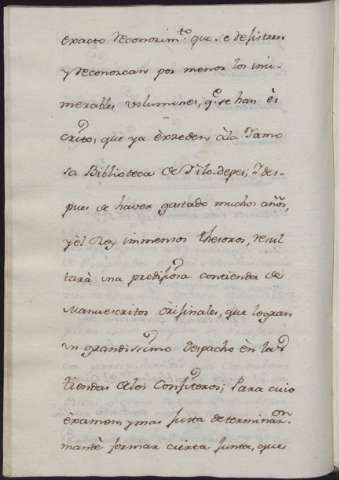 exacto reconorim.to que se desistan
y reconoscan por menor los inu-
merables volumines, q.e se han es
crito, que ya exceden à la famo
sa Biblioteca de Filodepes; y des-
pues de haver gastado muchos años,
y èl Rey immensos thesoros, resul
tarà una prodigiosa contienda de
Manuescritos originales, que logran
un grandissimo despacho èn las
tiendas de los Confiteros; Para cuio
èxamen, y mas justa determinaz.on
mandè formar cierta Junta, que